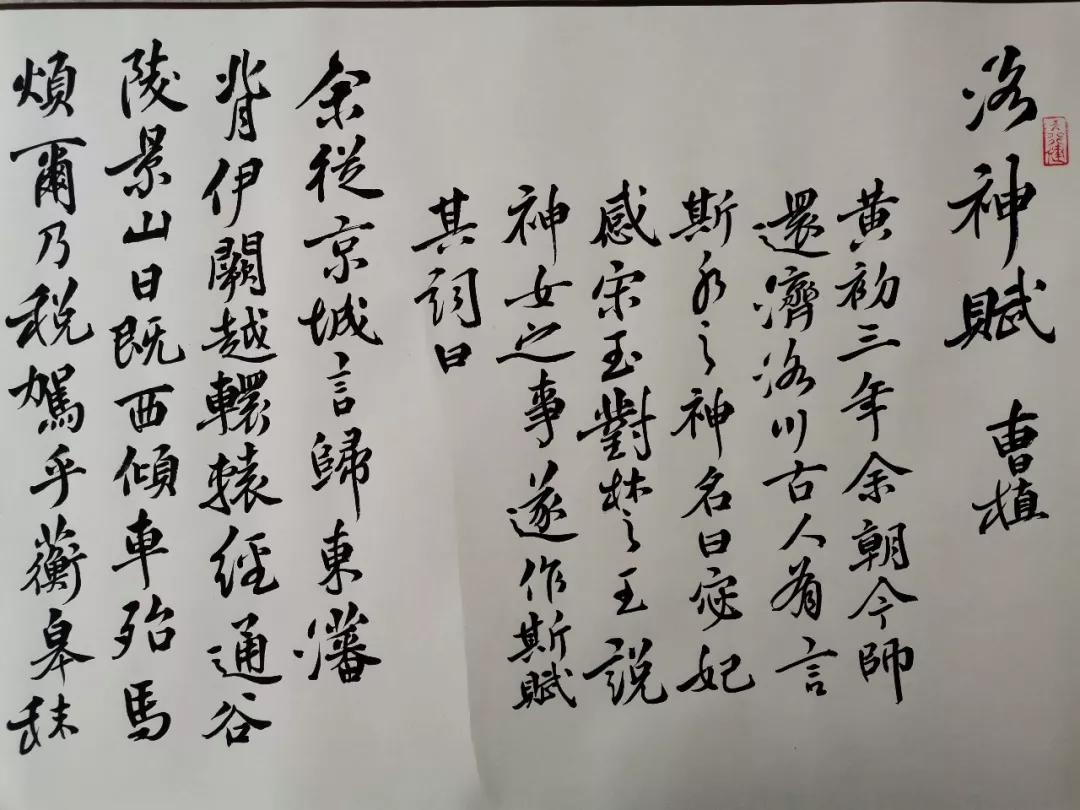 洛神賦 曹植
黄初三年余朝今師
還濟洛川古人有言
斯水之神名曰宓妃
感宋玉對楚王說
神女之事遂作斯賦
其詞曰
余從京城言歸東藩
背伊闕越轘轅經通谷
陵景山日既西傾車殆馬
煩爾乃稅駕乎蘅皋秣